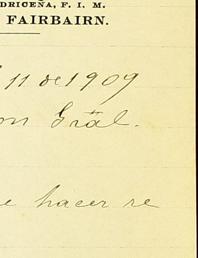 DRICEÑA, F. I. M.
FAIRBAIRN.
11 de 1909
on Gral.
e hacer re